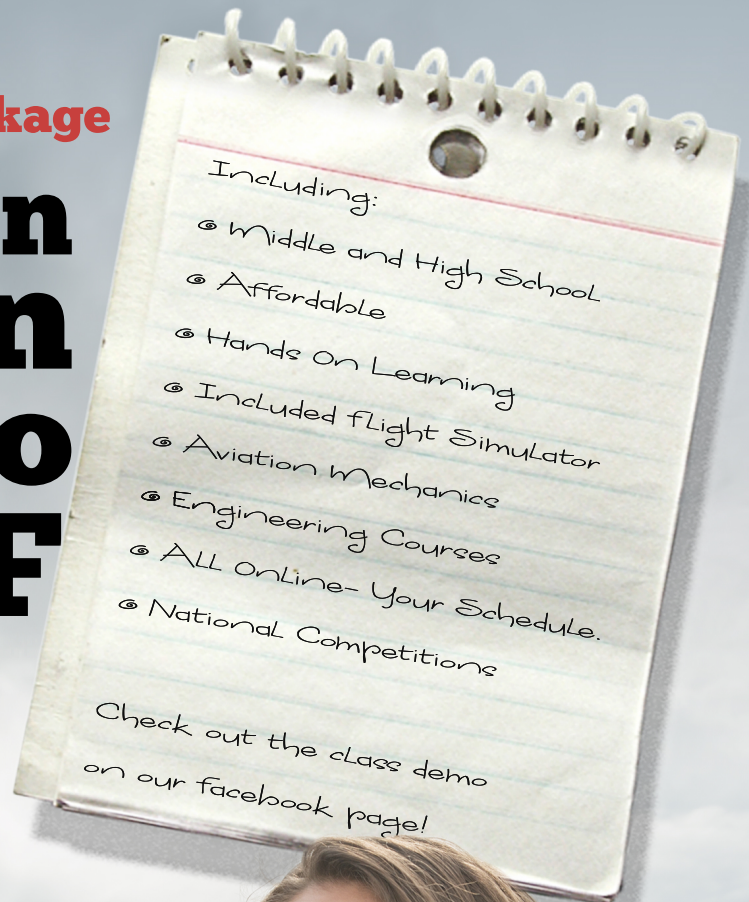 kage
n
n
o
F
Including:
Middle and High School
Affordable
Hands On Learning
Included flight Simulator
Aviation Mechanics
Engineering Courses
ALL OnLine- Your Schedule.
National Competitions
Check out the class demo
on our facebook page!